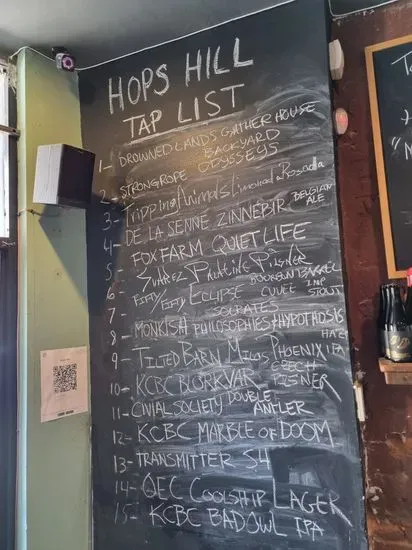 HOPS HILL
TAP LIST
1- DROWNED LANDS GATHER HOUSE
BACKYARD
2- STRONGROPE ODYSSEYS
3- Tripping Animals Limonada Rosada
4- DE LA SENNE ZINNEBIR BELGIAN ALE
5- FOX FARM QUIET LIFE
6 SUAREZ PALATINE PILSNER
7 FIFTY FIFTY ECLIPSE BOURBON BARREL
CUVEE IMP STOUT
SOCRATES
8- MONKISH PHILOSOPHIES+HYPOTHOSIS
9- TILTED BARN MILOS PHOENIX IPA
CZECH
10- KCBC BURKVAR PILSNER
11- CIVIAL SOCIETY DOUBLE ANTLER
12- KCBC MARBLE OF DOOM
13- TRANSMITTER S4
14- OEC COOLSHIP LAGER
15- KCBC BADOWL IPA